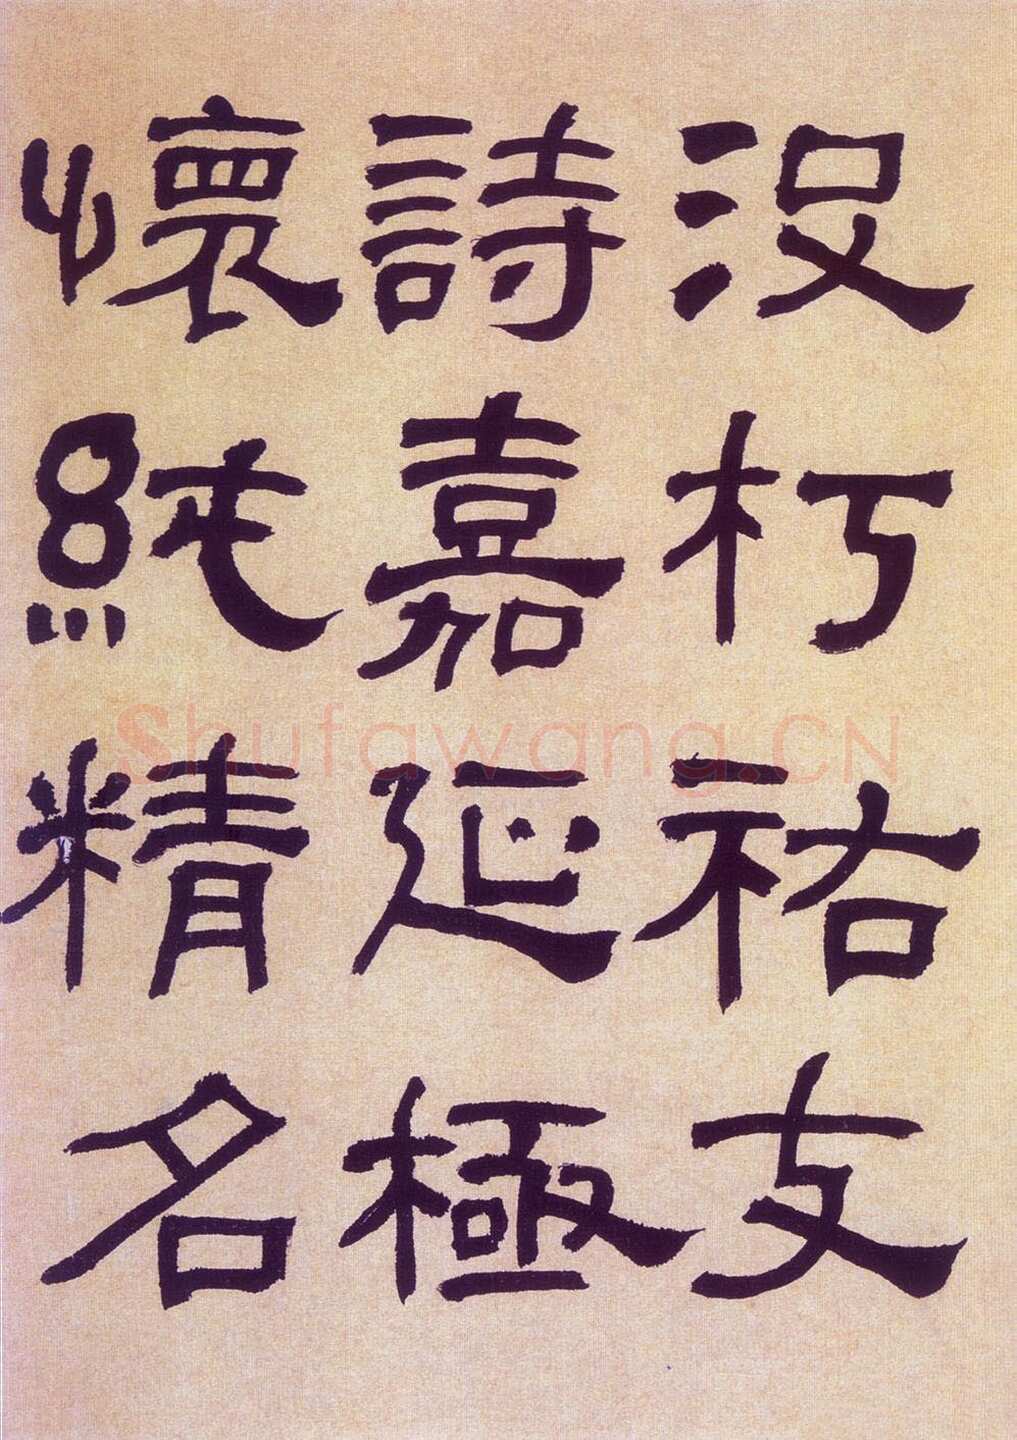 没朽祐支
詩嘉延極
懷純精名
Shufawang.CN